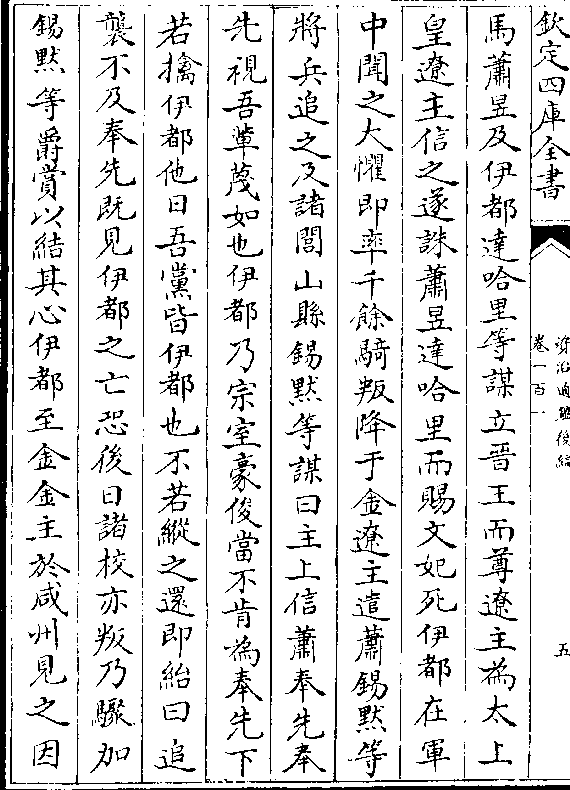 欽定四庫全書
資治通鑑後編
卷一百一
五
馬蕭昱及伊都達哈里等謀立晉王而尊遼主為太上
皇遼主信之遂誅蕭昱達哈里而賜文妃死伊都在軍
中聞之大懼即率千餘騎叛降于金遼主遣蕭錫默等
將兵追之及諸閭山縣錫默等謀曰主上信蕭奉先奉
先視吾輩蔑如也伊都乃宗室豪俊當不肯為奉先下
若擒伊都他日吾黨皆伊都也不若縱之還即紿曰追
襲不及奉先既見伊都之亡恐後日諸校亦叛乃驟加
錫默等爵賞以結其心伊都至金金主於咸州見之因